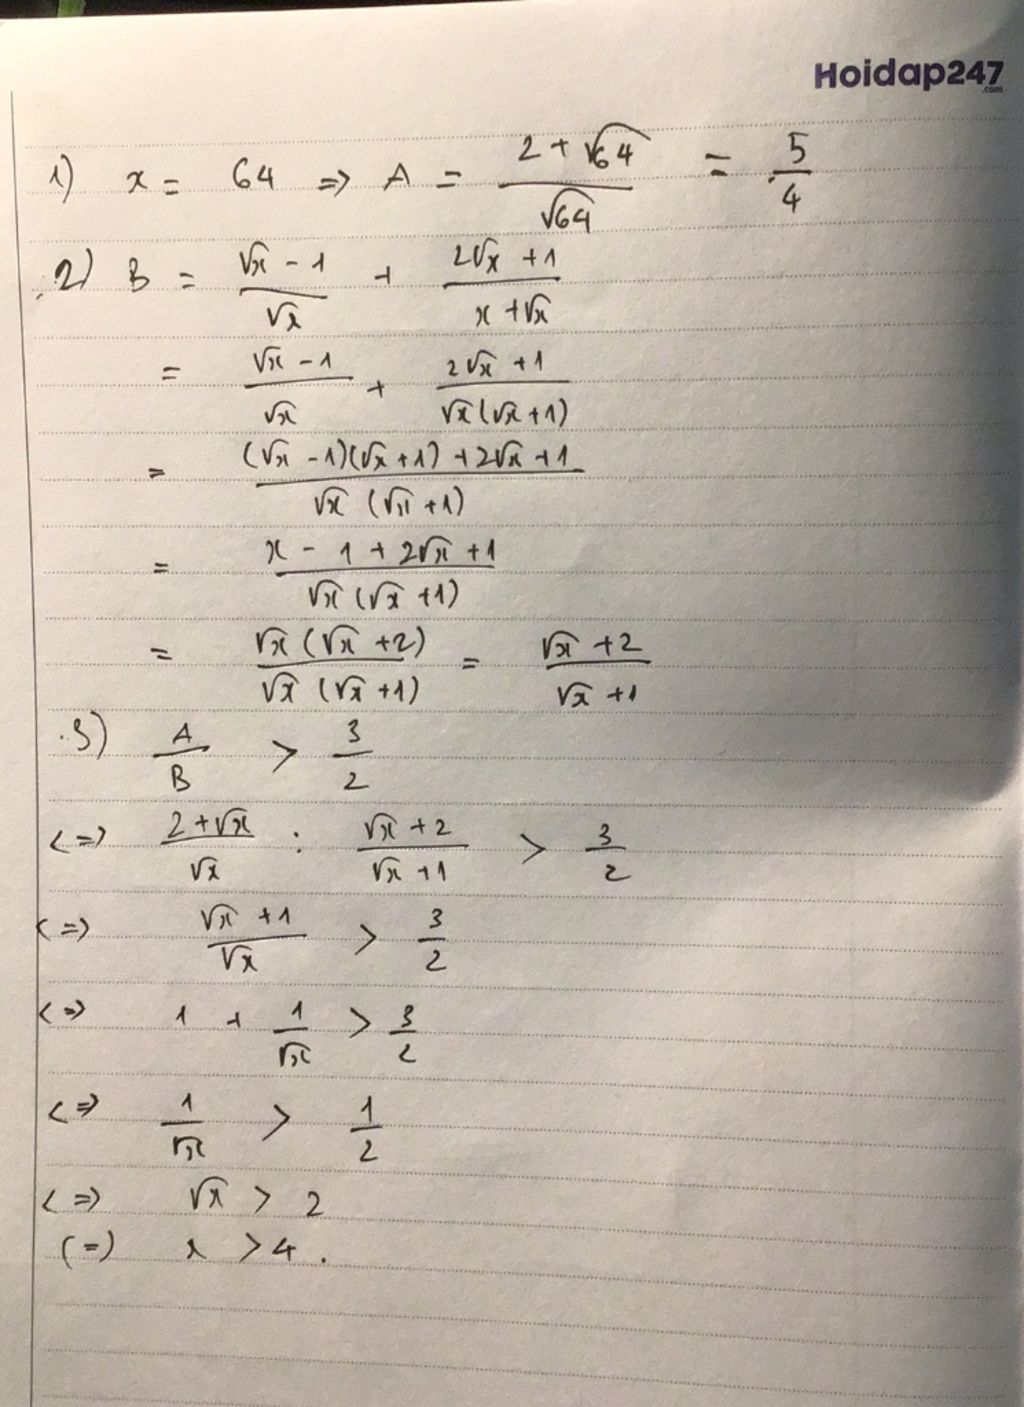 Hoidap247
.com
1) x = 64 => A = (2 + √64)/√64 = 5/4
2) B = (√x - 1)/√x + (2√x + 1)/(x + √x)
= (√x - 1)/√x + (2√x + 1)/(√x(√x + 1))
= ((√x - 1)(√x + 1) + 2√x + 1)/(√x (√x + 1))
= (x - 1 + 2√x + 1)/(√x (√x + 1))
= (√x (√x + 2))/(√x (√x + 1)) = (√x + 2)/(√x + 1)
3) A/B > 3/2
<=> (2 + √x)/√x : (√x + 2)/(√x + 1) > 3/2
<=> (√x + 1)/√x > 3/2
<=> 1 + 1/√x > 3/2
<=> 1/√x > 1/2
<=> √x > 2
(=) x > 4 .